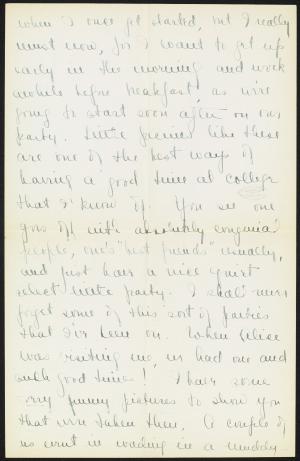 when I once get started, but I really
must now, for I want to get up
early in the morning and work
awhile before breakfast, as we're
going to start soon after on our
party. Little picnics like these
are one of the best ways of
having a good time at college
that I know of. You see one
goes off with absolutely congenial
people, one's "best friends" usually,
and just have a nice quiet
select little party. I shall never
forget some of this sort of parties
that I've been on. When Elise
was visiting me, we had one and
such good times! I have some
very funny pictures to show you
that were taken then. A couple of
us went in wading in a muddy